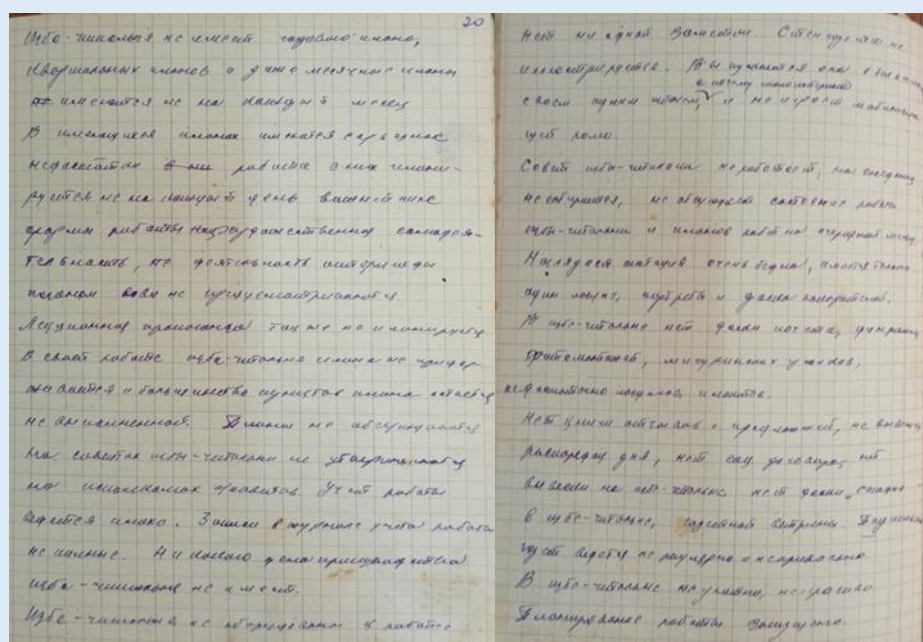 20
Изба-читальня не имеет годового плана,
квартальных планов и даже месячные планы
имеются не на каждый месяц
В имеющихся планах имеются серьезные
недостатки работа она плани-
руется не на каждый день важнейшие
формы работы художественная самодея-
тельность, деятельность агитбригады
планом не предусматриваются
Лекционная пропаганда также не планируется
В своей работе изба-читальня плана не придер-
живается и большинство пунктов плана остается
не выполненной. Планы не обсуждаются
на советах избы-читальни и утверждаются
на исполкомах с/советов. Учет работы
ведется плохо. Записи в журнале учета работы
не полные. Никакого
изба-читальня не имеет.
Изба-читальня не в работе
нет ни одной заметки. Стенгазета не
иллюстрируется.
и не играет
роли.
Совет избы-читальни не работает, на заседания
не собирается, не обсуждает состояние работы
избы-читальни и планов работ на очередной месяц
Наглядная агитация очень бедна, имеется только
один лозунг, портреты и
В избе-читальне нет доски почета,
фотомонтажей, мичуринских уголков,
недостаточно лозунгов, плакатов.
Нет книги отзывов и предложений, не вывешен
распорядок дня, нет соц. договора, нет
вывески на избе-читальне нет доски "сегодня
в избе-читальне", газетной витрины.
учет ведется не регулярно и неправильно
В избе-читальне не уютно, не красиво.
Планирование работы